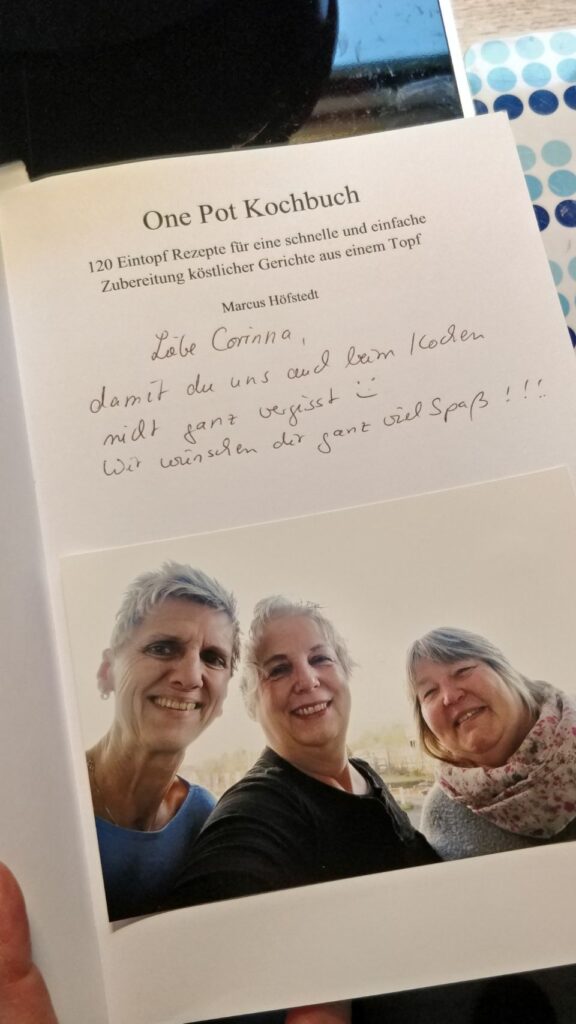 One Pot Kochbuch
120 Eintopf Rezepte für eine schnelle und einfache
Zubereitung köstlicher Gerichte aus einem Topf
Marcus Höfstedt
Liebe Corinna,
damit du uns auch beim Kochen
nicht ganz vergisst :)
Wir wünschen dir ganz viel Spaß!!!